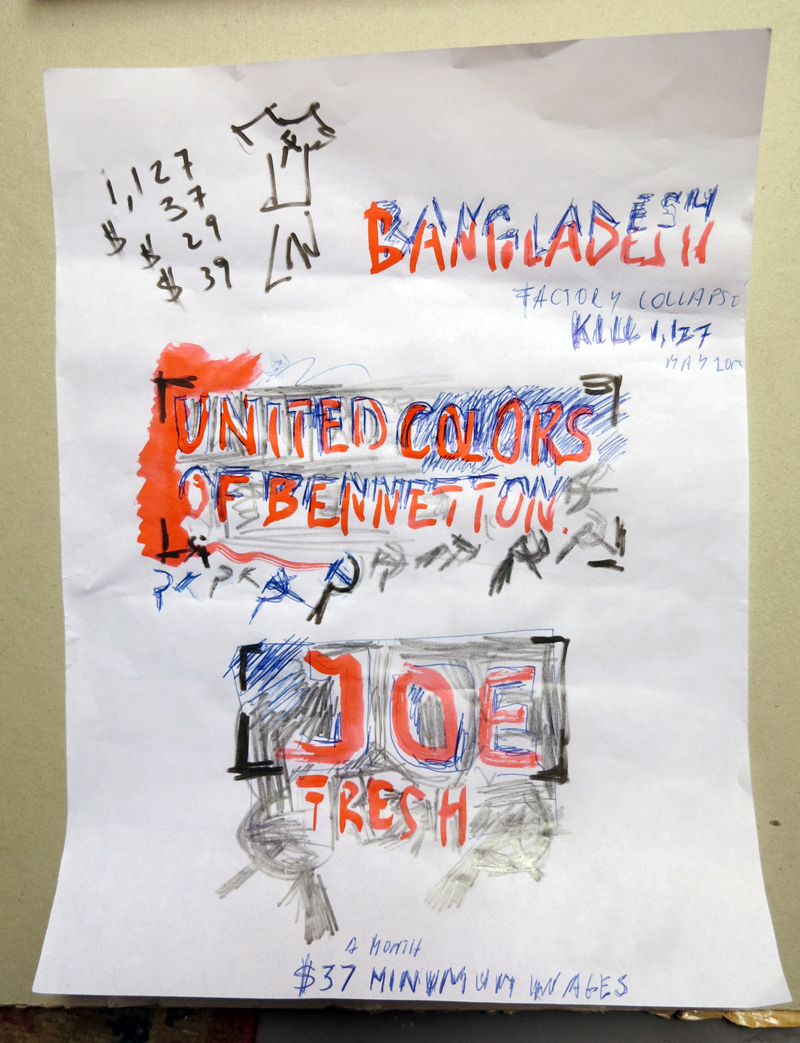 1,127
37
$ 29
$
$ 39
BANGLADESH
BANGLADESH
FACTORY COLLAPSE
KILL 1,127
MAY
UNITED COLORS
OF BENNETTON.
JOE
FRESH
A MONTH
$37 MINIMUM WAGES